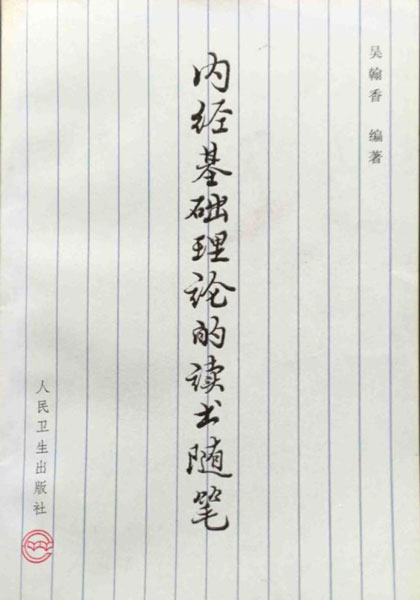 吴翰香 编著
内经基础理论的读书随笔
人民卫生出版社